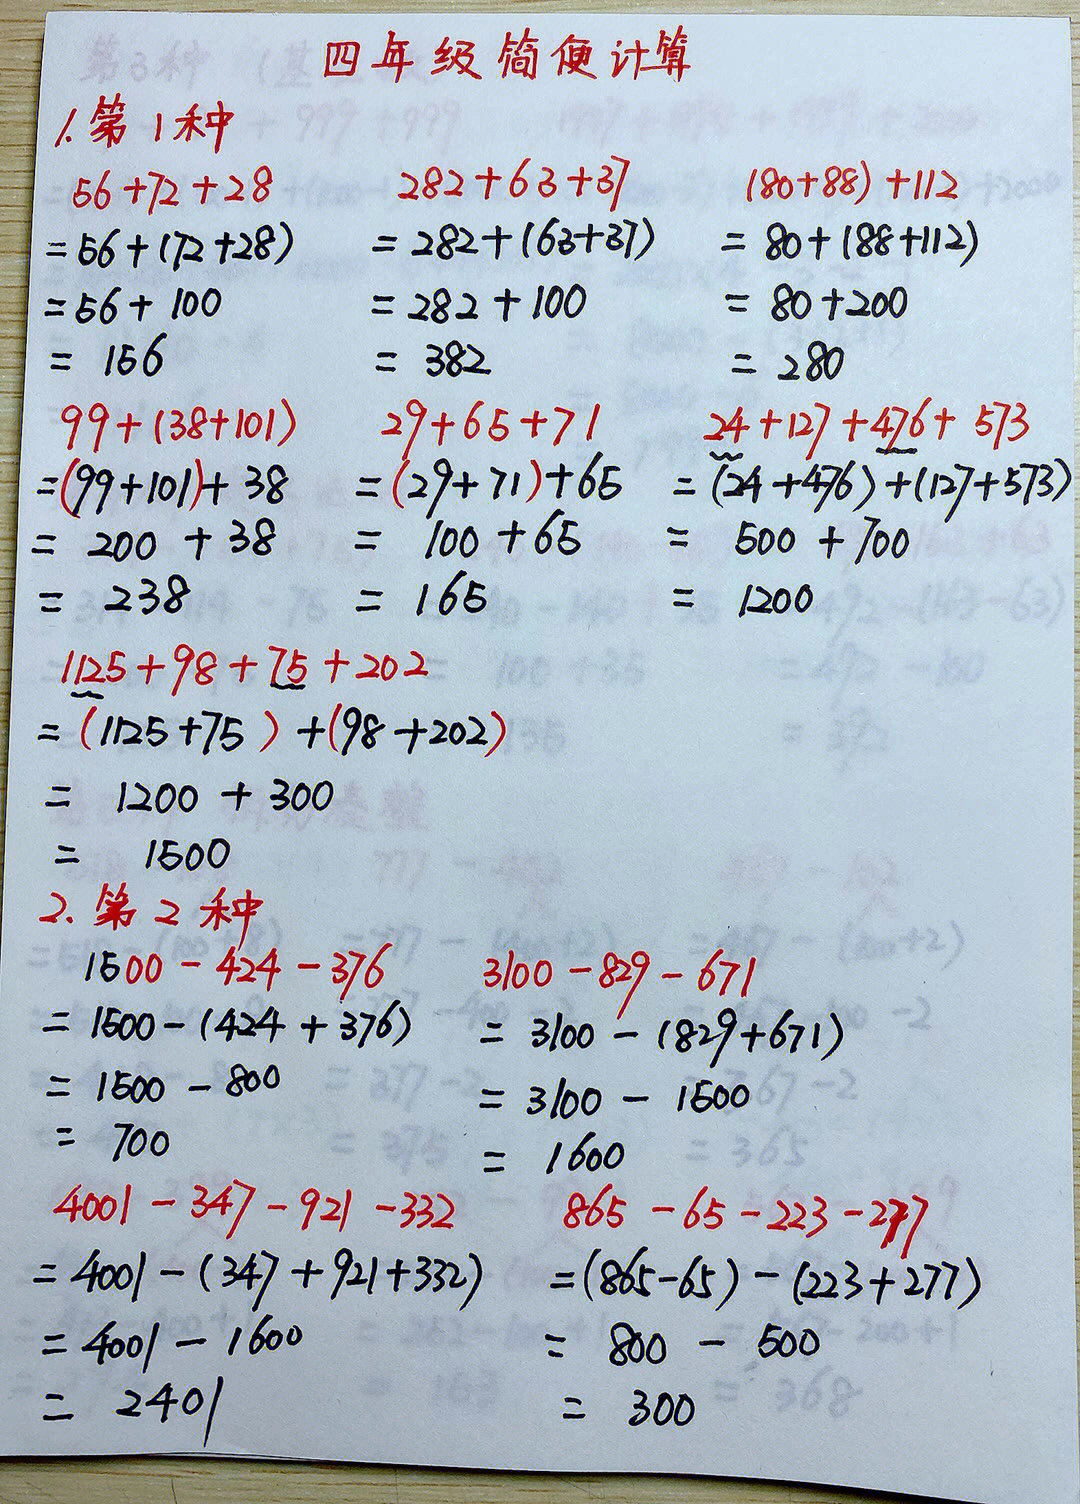 四年级简便计算
1.第1种
56+72+28 282+63+37 (80+88)+112
=56+(72+28) =282+(63+37) =80+(88+112)
=56+100 =282+100 =80+200
=156 =382 =280
99+(38+101) 29+65+71 24+127+476+573
=(99+101)+38 =(29+71)+65 =(24+476)+(127+573)
=200+38 =100+65 =500+700
=238 =165 =1200
1125+98+75+202
=(1125+75)+(98+202)
=1200+300
=1500
2.第2种
1500-424-376 3100-829-671
=1500-(424+376) =3100-(829+671)
=1500-800 =3100-1500
=700 =1600
4001-347-921-332 865-65-223-277
=4001-(347+921+332) =(865-65)-(223+277)
=4001-1600 =800-500
=2401 =300